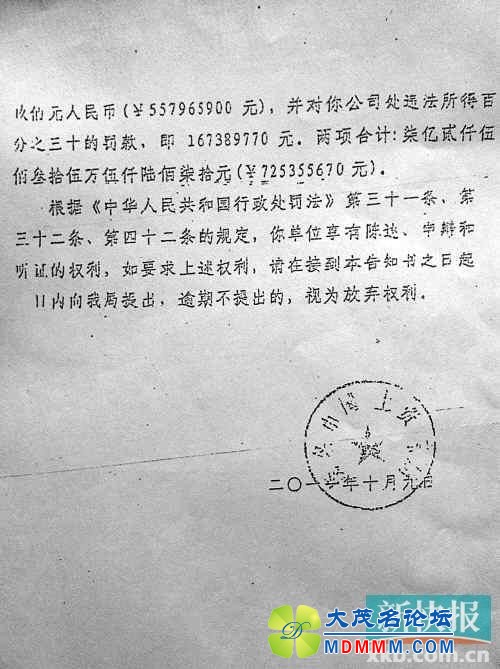 玖佰元人民币(￥557965900 元)，并对你公司处违法所得百
分之三十的罚款，即 167389770 元。两项合计:柒亿贰仟伍
佰叁拾伍万伍仟陆佰柒拾元(￥725355670 元)。
根据《中华人民共和国行政处罚法》第三十一条、第
三十二条、第四十二条的规定，你单位享有陈述、申辩和
听证的权利，如要求上述权利，请在接到本告知书之日起
日内向我局提出，逾期不提出的，视为放弃权利。
国土资
二〇一一年十月九日
大茂名论坛
MDMMM.COM
新快报
xkb.com.cn